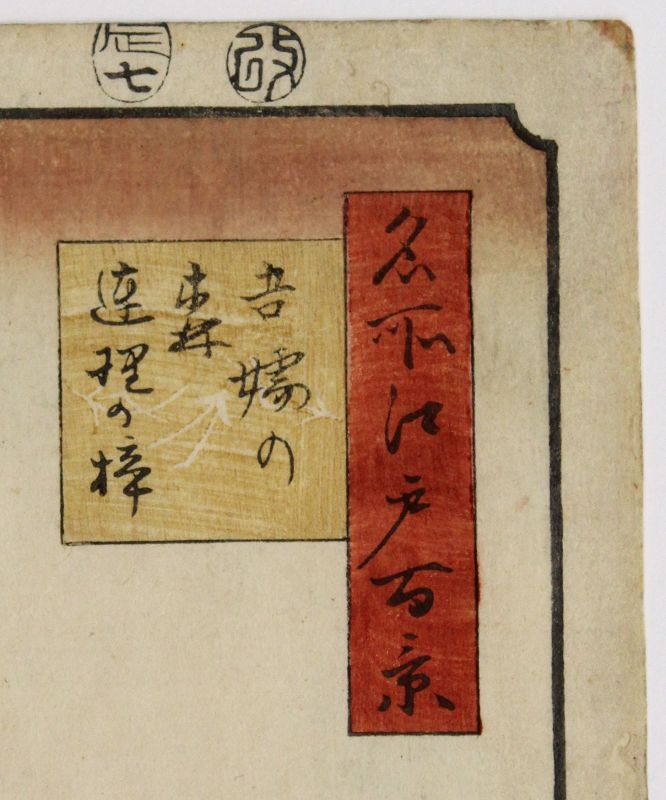 改
七
名所江戸百景
吾嬬の
森
連理の梓